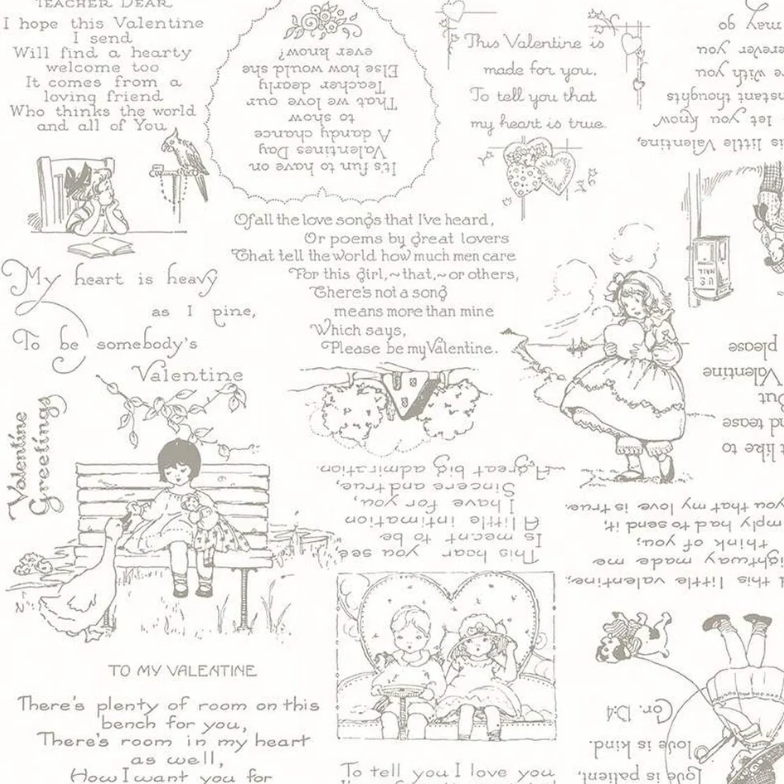 TEACHER DEAR
I hope this Valentine
I send
Will find a hearty
welcome too
It comes from a
loving friend
Who thinks the world
and all of You
It's fun to have on
Valentines Day
A dandy chance
to show
That we love our
Teacher dearly
Else how would she
ever know?
This Valentine is
made for you,
To tell you that
my heart is true.
is little Valentine,
let you know
nstant thoughts
e with you
rever you
may go
Of all the love songs that I've heard,
Or poems by great lovers
That tell the world how much men care
For this girl,~that,~or others,
There's not a song
means more than mine
Which says,
Please be my Valentine.
My heart is heavy
as I pine,
To be somebody's
Valentine
U.S.
MAIL
t like to
nd tease
But
Valentine
please
Valentine
Greetings
This hear you see,
Is meant to be
A little intimation
I have for you,
Sincere and true,
A great big admiration.
d this little valentine;
ightway made me
think of you;
mply had to send it,
you that my love is true.
TO MY VALENTINE
There's plenty of room on this
bench for you,
There's room in my heart
as well,
How I want you for
To tell you I love you
love is patient,
love is kind.
Cor. 13:4